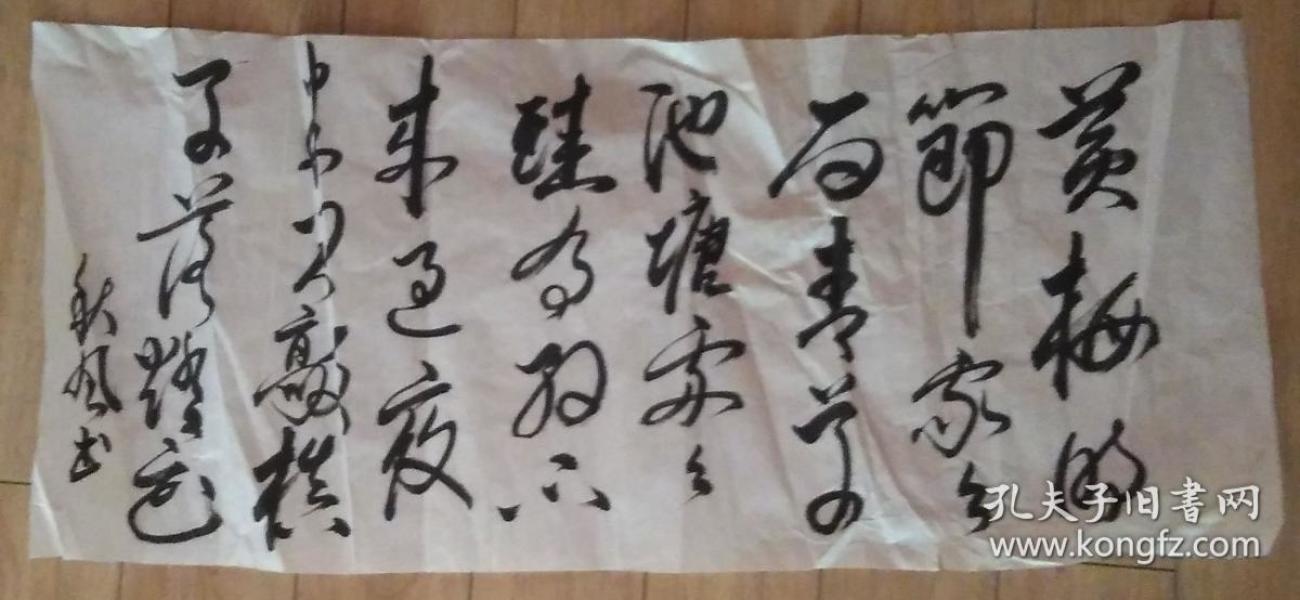 黄梅時
節家々
雨青草
池塘處々
蛙有約不
来過夜
半闲敲棋
子落燈花
秋风书
孔夫子旧書网
www.kongfz.com